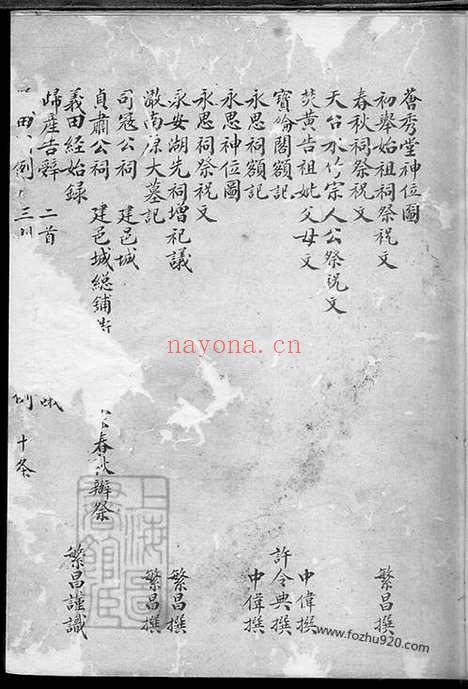 薈秀堂神位圖
初舉始祖祠祭祝文　繁昌撰
春秋祠祭祝文
天台水竹宗人公祭祝文
焚黃告祖妣父母文　中偉撰
寶綸閣額記　許令典撰
永思祠額記　中偉撰
永思神位圖
永思祠祭祝文
永安湖先祠增祀議　繁昌撰
澉南原大墓記　繁昌撰
司寇公祠　建邑城
貞肅公祠　建邑城總鋪　春秋辦祭
義田經始錄　繁昌謹識
歸產告辭　二首
田　例　三　十条
nayona.cn
www.fozhu920.com